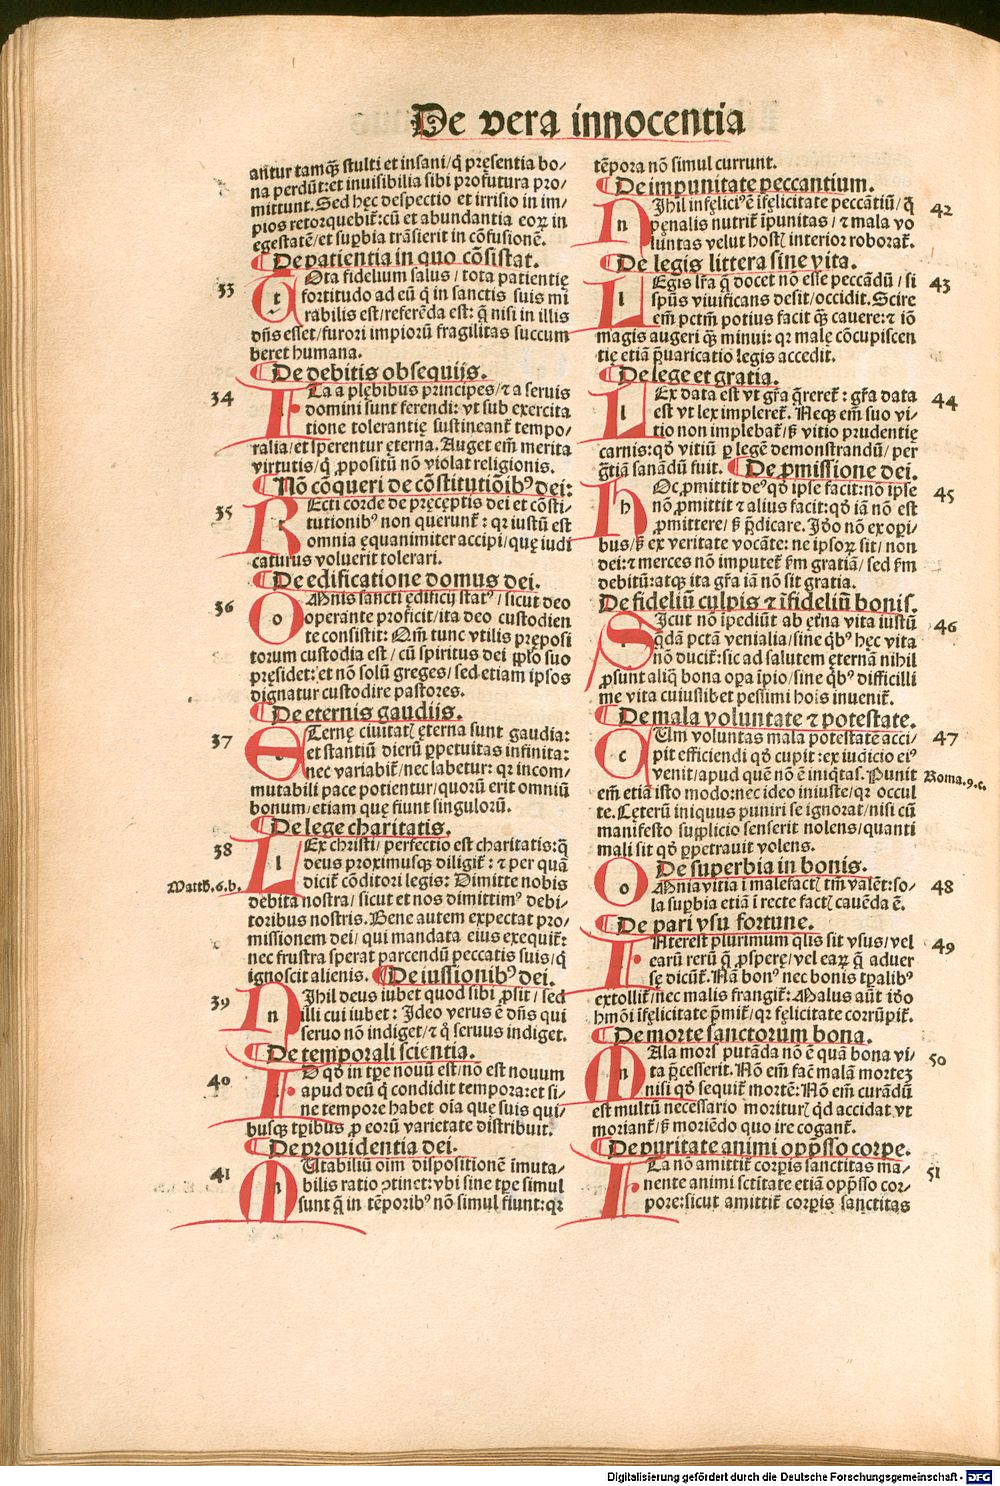 De vera innocentia
antur tamq̃ stulti et insani/q̇ pręsentia bo-
na perdūt:et inuisibilia sibi profutura pro-
mittunt. Sed hęc despectio et irrisio in im-
pios retorquebit̃:cū et abundantia eoꝝ in
egestatē/et supbia trāsierit in cōfusionē.
De patientia in quo cōsistat.
33
tOta fidelium salus/tota patientię
fortitudo ad eū q̇ in sanctis suis mi
rabilis est/referēda est: q̇ nisi in illis
dñs esset/furori impiorū fragilitas succum
beret humana.
De debitis obsequijs.
34
ITa a plębibus principes/⁊ a seruis
domini sunt ferendi: vt sub exercita
tione tolerantię sustineant̃ tempo-
ralia/et sperentur ęterna. Auget em̃ merita
virtutis/q̇ ꝓpositū nō violat religionis.
Nō cōqueri de cōstitutiōibꝰ dei:
35
rEcti corde de pręceptis dei et cōsti-
tutionibꝰ non querunt̃: qꝛ iustū est
omnia ęquanimiter accipi/quę iudi
caturus voluerit tolerari.
De edificatione domus dei.
36
oMnis sancti ędificij statꝰ/sicut deo
operante proficit/ita deo custodien
te consistit: Om̃ tunc vtilis pręposi
torum custodia est/cū spiritus dei ꝓp̄lo suo
pręsidet: et nō solū greges/sed etiam ipsos
dignatur custodire pastores.
De eternis gaudijs.
37
eTernę ciuitatꝭ ęterna sunt gaudia:
et stantiū dierū ꝑpetuitas infinita:
nec variabit̃/nec labetur: qꝛ incom-
mutabili pace potientur/quorū erit omniū
bonum/etiam quę fiunt singulorū.
De lege charitatis.
38
lEx christi/perfectio est charitatis:q̇
deus proximusqꝫ diligit̃: ⁊ per quā
dicit̃ cōditori legis: Dimitte nobis
Matth.6.b.
debita nostra/sicut et nos dimittimꝰ debi-
toribus nostris. Bene autem expectat pro-
missionem dei/qui mandata eius exequit̃:
nec frustra sperat parcendū peccatis suis/q̇
ignoscit alienis. De iussionibꝰ dei.
39
nIhil deus iubet quod sibi ꝓsit/sed
illi cui iubet: Ideo verus ē dñs qui
seruo nō indiget/⁊ q̇ seruus indiget.
De temporali scientia.
40
ID qḋ in tꝑe nouū est/nō est nouum
apud deū q̇ condidit tempora:et si-
ne tempore habet oīa quę suis qui-
busqꝫ tꝑibus ꝓ eorū varietate distribuit.
De prouidentia dei.
41
mUtabiliū oīm dispositionē imuta-
bilis ratio ꝯtinet:vbi sine tꝑe simul
sunt q̄ in tēporibꝰ nō simul fiunt:qꝛ
tēpora nō simul currunt.
De impunitate peccantium.
42
nIhil infęliciꝰ ē īfęlicitate peccātiū/q̄
pęnalis nutrit̃ īpunitas/⁊ mala vo
luntas velut hostꝭ interior roborat̃.
De legis littera sine vita.
43
lEgis lr̄a q̄ docet nō esse peccādū/si
spūs viuificans desit/occidit. Scire
em̃ pctm̄ potius facit q̄ꝫ cauere:⁊ iō
magis augeri q̄ꝫ minui: qꝛ malę cōcupiscen
tię etiā p̄uaricatio legis accedit.
De lege et gratia.
44
lEx data est vt gr̄a q̄reret̃: gr̄a data
est vt lex impleret̃. Neqꝫ em̃ suo vi-
tio non implebat̃/ß vitio prudentię
carnis: qḋ vitiū ꝑ legē demonstrandū/per
gr̄iam sanādū fuit. De ꝓmissione dei.
45
hOc ꝓmittit deꝰ qḋ ipse facit:nō ipse
nō ꝓmittit ⁊ alius facit: qḋ iā nō est
ꝓmittere/ß p̄dicare. Iḋo nō ex opi-
bus/ß ex veritate vocāte: ne ipsoꝝ sit/non
dei:⁊ merces nō imputet̃ ẜm gratiā/sed ẜm
debitū:atqꝫ ita gr̄a iā nō sit gratia.
De fideliū culpis ⁊ īfideliū bonis.
46
sIcut nō īpediūt ab ęt̄na vita iustū
q̇dā pctā venialia/sine q̇bꝰ hęc vita
nō ducit̃:sic ad salutem ęternā nihil
ꝓsunt aliq̄ bona opa īpio/sine q̇bꝰ difficilli
me vita cuiuslibet pessimi hoīs inuenit̃.
De mala voluntate ⁊ potestate.
47
cUm voluntas mala potestatē acci-
pit efficiendi qḋ cupit: ex iudicio eiꝰ
venit/apud quē nō ē iniq̇tas. Punit
Roma.9.c.
em̃ etiā isto modo:nec ideo iniuste/qꝛ occul
te. Cęterū iniquus puniri se ignorat/nisi cū
manifesto supplicio senserit nolens/quanti
mali sit qḋ ꝑpetrauit volens.
De superbia in bonis.
48
oMnia vitia ī malefactꝭ tm̄ valēt:so-
la supbia etiā ī recte factꝭ cauēda ē.
De pari vsu fortune.
49
INterest plurimum q̄lis sit vsus/vel
earū rerū q̄ ꝓsperę/vel eaꝝ q̄ aduer
sę dicūt̃. Nā bonꝰ nec bonis tꝑalibꝰ
extollit̃/nec malis frangit̃: Malus aūt iḋo
hm̄ōi īfęlicitate p̄mit̃/qꝛ fęlicitate corrūpit̃.
De morte sanctorum bona.
50
mAla mors putāda nō ē quā bona vi-
ta p̄cesserit. Nō em̃ facē malā mortēꝫ
nisi qḋ sequit̃ mortē: Nō em̃ curādū
est multū necessario morituꝝ qd accidat vt
moriant̃/ß moriēdo quo ire cogant̃.
De puritate animi opp̄sso corpe.
51
ITa nō amittit̃ corpis sanctitas ma-
nente animi sctitate etiā opp̄sso cor-
pore:sicut amittit̃ corpis sanctitas
Digitalisierung gefördert durch die Deutsche Forschungsgemeinschaft - DFG